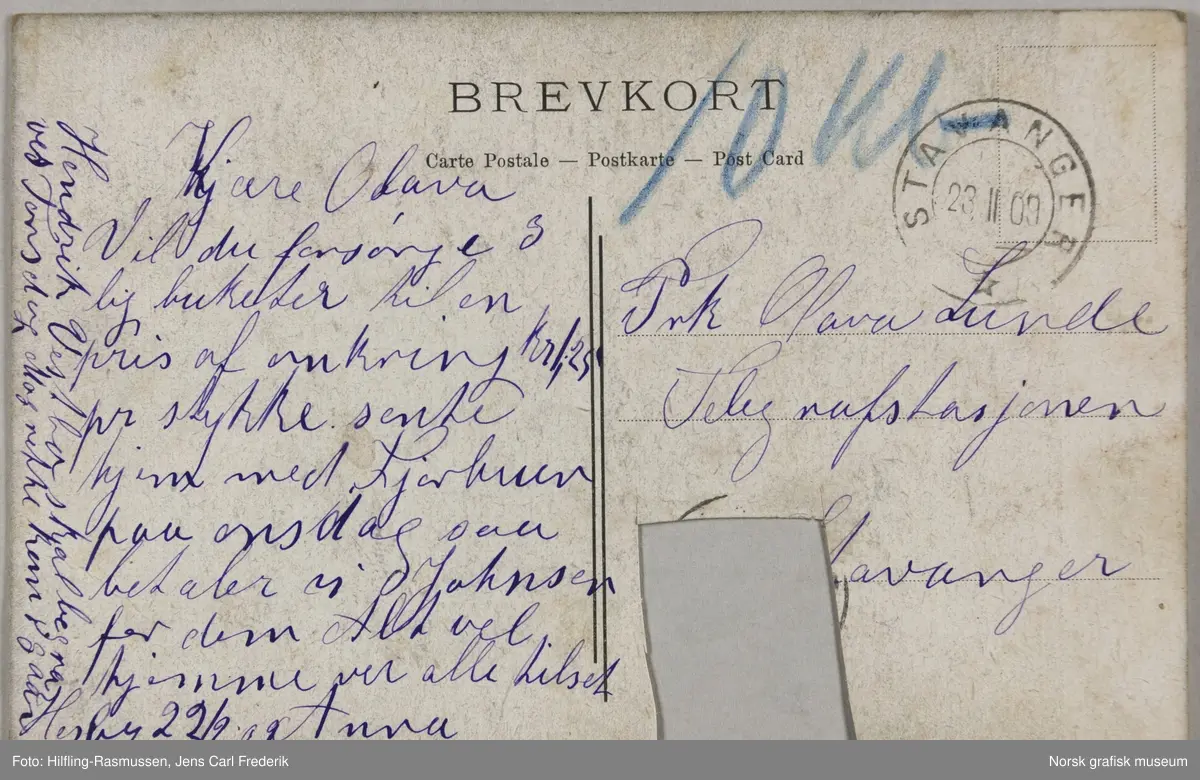 BREVKORT
Carte Postale — Postkarte — Post Card
10 Kl
STAVANGER
23 II 09
Kjære Olava
Vil du forsørge 3
lig buketer til en
pris af omkring Kr 1,25
pr stykke. sente
hjem med Fjorbuen
paa onsdag saa
betaler vi Johnsen
for dem Alt vel
hjemme ver alle hilset
22/2 09 Anna
Hendrik Vestbø skal begra
ves Torsdag
Frk Olava Lunde
Telegrafstasjonen
Stavanger
Foto: Hilfling-Rasmussen, Jens Carl Frederik
Norsk grafisk museum